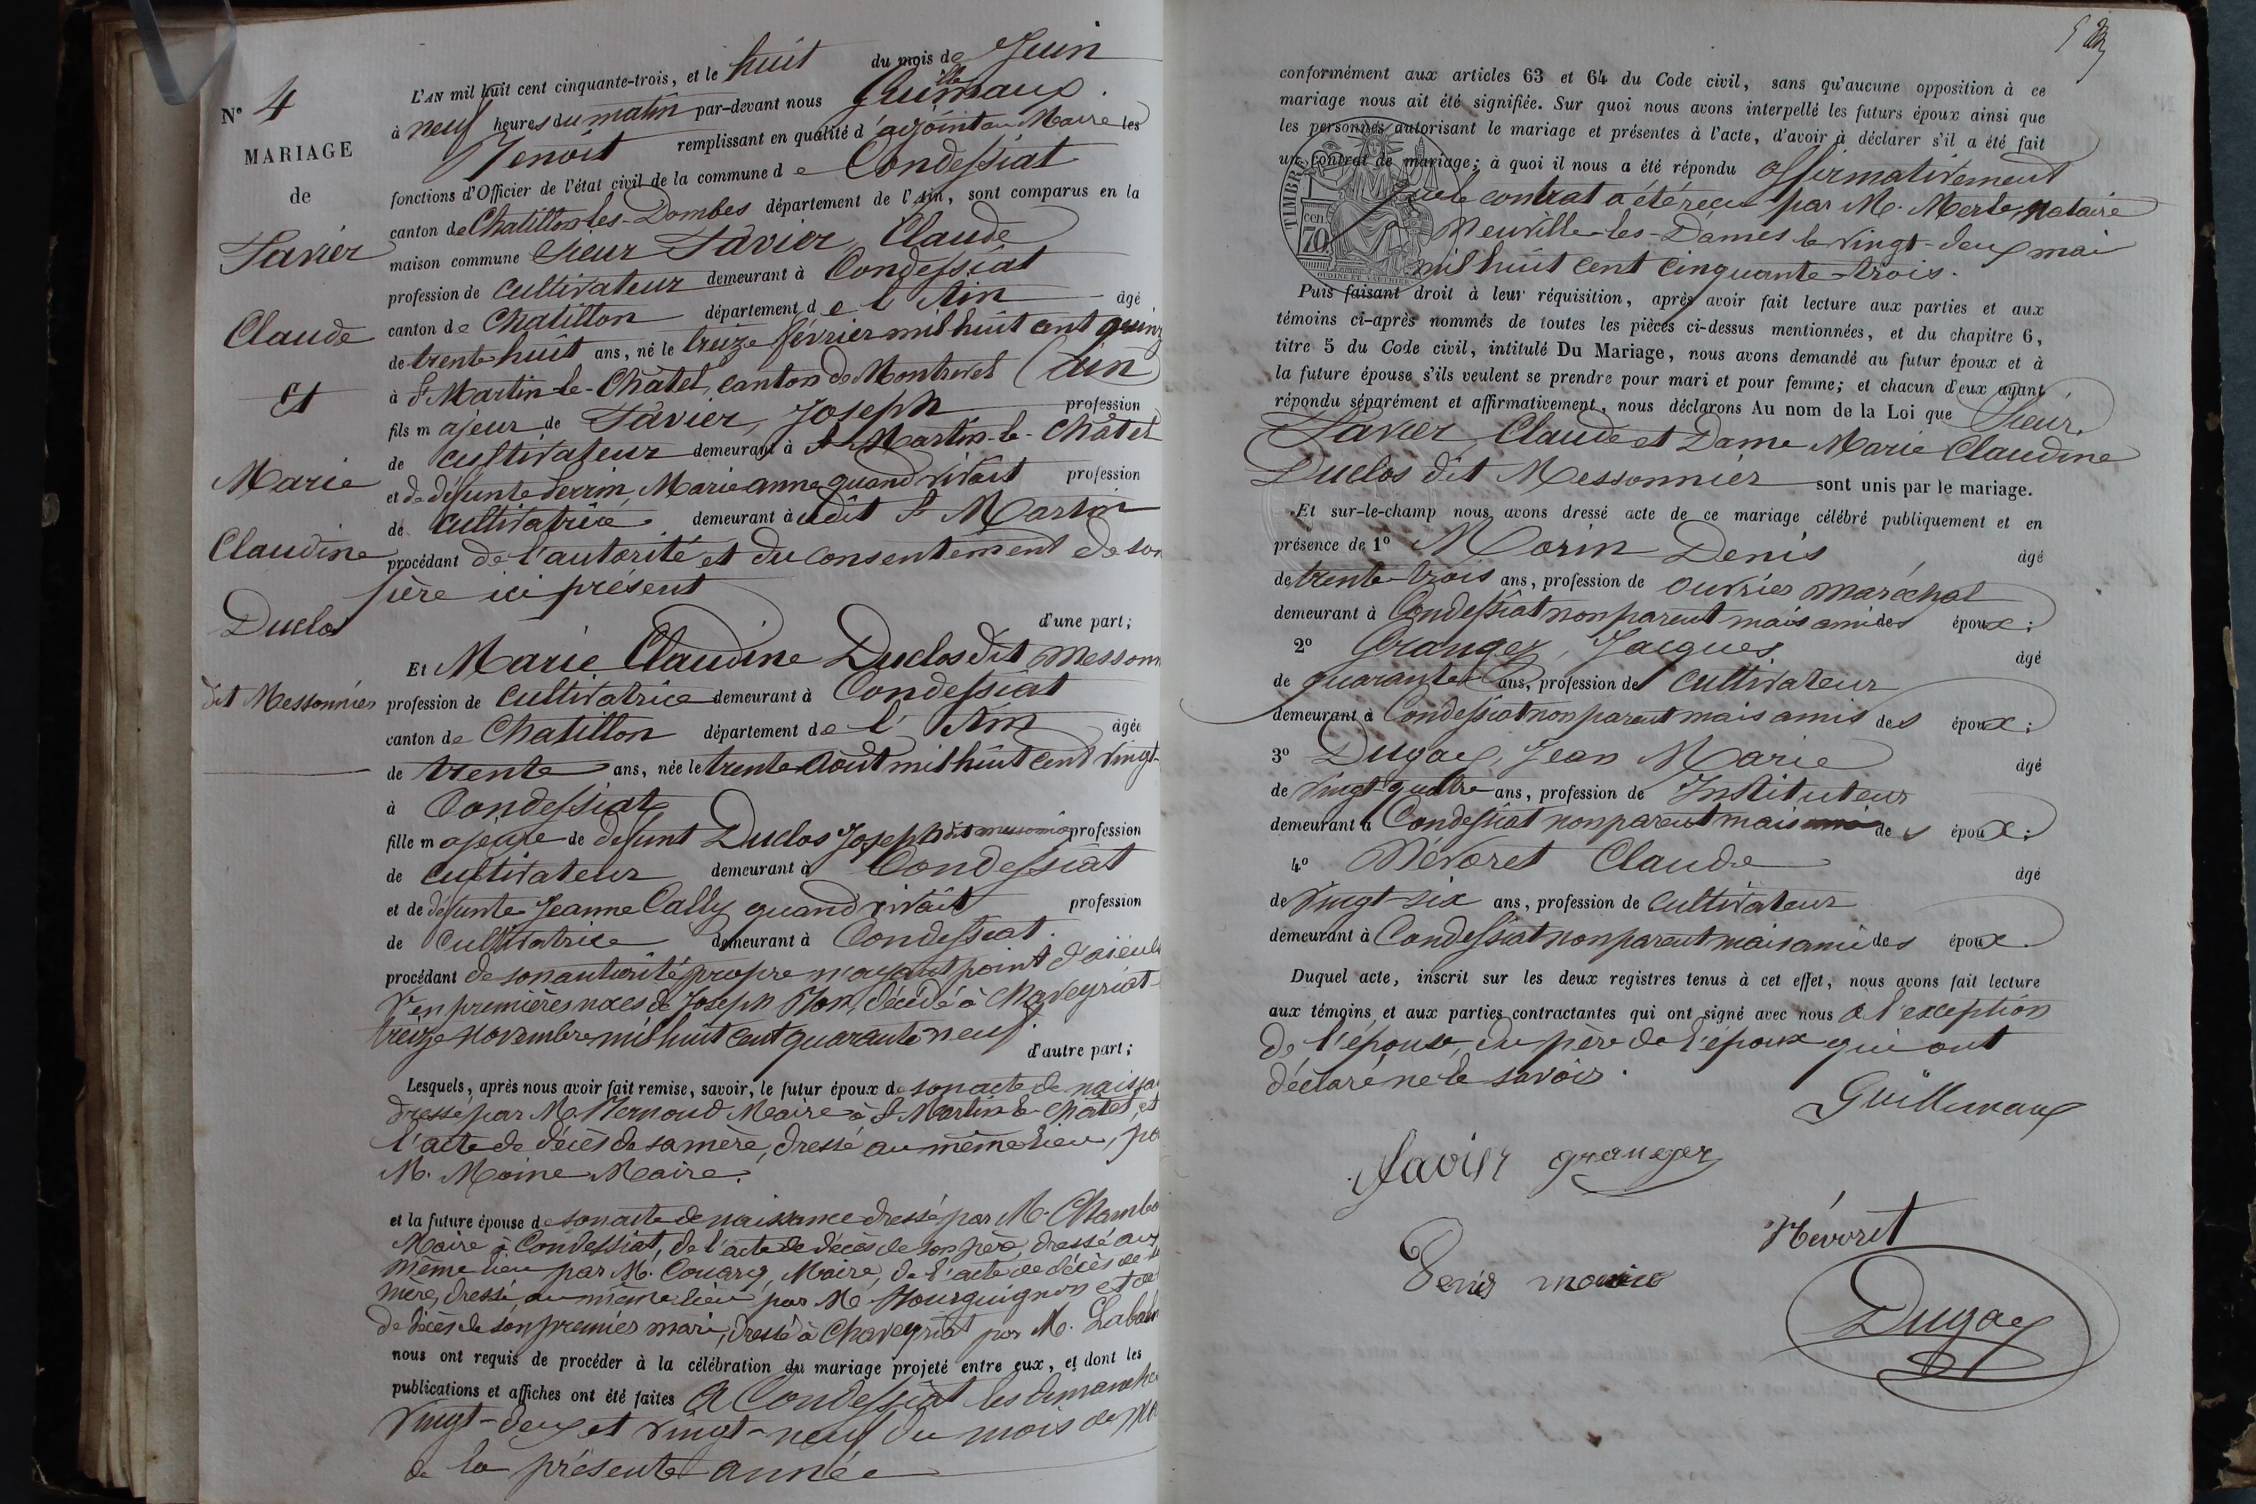 N° 4
MARIAGE
de
Favier
Claude
Et
Marie
Claudine
Duclos
dit Messonnier
L'AN mil huit cent cinquante-trois, et le huit du mois de Juin
à neuf heures du matin par-devant nous Guillemaux
Benoit remplissant en qualité d'adjoint au Maire les
fonctions d'Officier de l'état civil de la commune de Condessiat
canton de Chatillon-les-Dombes département de l'Ain, sont comparus en la
maison commune Sieur Favier, Claude
profession de cultivateur demeurant à Condessiat
canton de Chatillon département de l'Ain âgé
de trente huit ans, né le treize février mil huit cent quinz
à St Martin-le-Châtel, canton de Montrevel (Ain)
fils majeur de Favier, Joseph profession
de cultivateur demeurant à St Martin-le-Châtel
et de défunte Perrin, Marie anne quand vivait profession
de cultivatrice demeurant à udit St Martin
procédant de l'autorité et du consentement de son
père ici présent
d'une part;
Et Marie Claudine Duclos dit Messonn
profession de cultivatrice demeurant à Condessiat
canton de Chatillon département de l'Ain âgée
de trente ans, née le trente Août mil huit cent vingt-
à Condessiat
fille majeure de défunt Duclos Joseph dit messonnier profession
de cultivateur demeurant à Condessiat
et de défunte Jeanne Cally quand vivait profession
de cultivatrice demeurant à Condessiat.
procédant de son autorité propre n'ayant point d'aïeuls
Ve en premières noces de Joseph Bon, décédé à Chaveyriat
treize novembre mil huit cent quarante neuf.
d'autre part;
Lesquels, après nous avoir fait remise, savoir, le futur époux de son acte de naissa
dressé par M. Bernoud Maire à St Martin-le-Châtel, et
l'acte de décès de sa mère, dressé au même lieu, pa
M. Moine Maire.
et la future épouse de son acte de naissance dressé par M. Chambo
Maire à Condessiat, de l'acte de décès de son père, dressé au
même lieu par M. Maire, de l'acte de décès de
mère, dressé au même lieu par M. Bourguignon et de
de décès de son premier mari, dressé à Chaveyriat par M.
nous ont requis de procéder à la célébration du mariage projeté entre eux, et dont les
publications et affiches ont été faites A Condessiat les dimanche
vingt-deux et vingt-neuf du mois de Ma
de la présente année
conformément aux articles 63 et 64 du Code civil, sans qu'aucune opposition à ce
mariage nous ait été signifiée. Sur quoi nous avons interpellé les futurs époux ainsi que
les personnes autorisant le mariage et présentes à l'acte, d'avoir à déclarer s'il a été fait
un contrat de mariage; à quoi il nous a été répondu affirmativement
que le contrat a été reçu par M. Merle, notaire
Neuville-les-Dames le vingt-deux mai
mil huit cent cinquante-trois.
TIMBRE
cen
70
Puis faisant droit à leur réquisition, après avoir fait lecture aux parties et aux
témoins ci-après nommés de toutes les pièces ci-dessus mentionnées, et du chapitre 6,
titre 5 du Code civil, intitulé Du Mariage, nous avons demandé au futur époux et à
la future épouse s'ils veulent se prendre pour mari et pour femme; et chacun d'eux ayant
répondu séparément et affirmativement, nous déclarons Au nom de la Loi que Sieur
Favier Claude et Dame Marie Claudine
Duclos dit Messonnier sont unis par le mariage.
Et sur-le-champ nous avons dressé acte de ce mariage célébré publiquement et en
présence de 1° Morin Denis âgé
de trente-trois ans, profession de ouvrier maréchal
demeurant à Condessiat non parent mais ami des époux;
2° Granger, Jacques âgé
de quarante ans, profession de cultivateur
demeurant à Condessiat non parent mais amis des époux;
3° Dugay, Jean Marie âgé
de vingt-quatre ans, profession de Instituteur
demeurant à Condessiat non parent mais ami des époux;
4° Névoret Claude âgé
de vingt-six ans, profession de cultivateur
demeurant à Condessiat non parent mais ami des époux.
Duquel acte, inscrit sur les deux registres tenus à cet effet, nous avons fait lecture
aux témoins et aux parties contractantes qui ont signé avec nous à l'exception
de l'épouse, du père de l'époux qui ont
déclaré ne le savoir.
Guillemaux
Favier granger
Névoret
Denis morin
Dugay